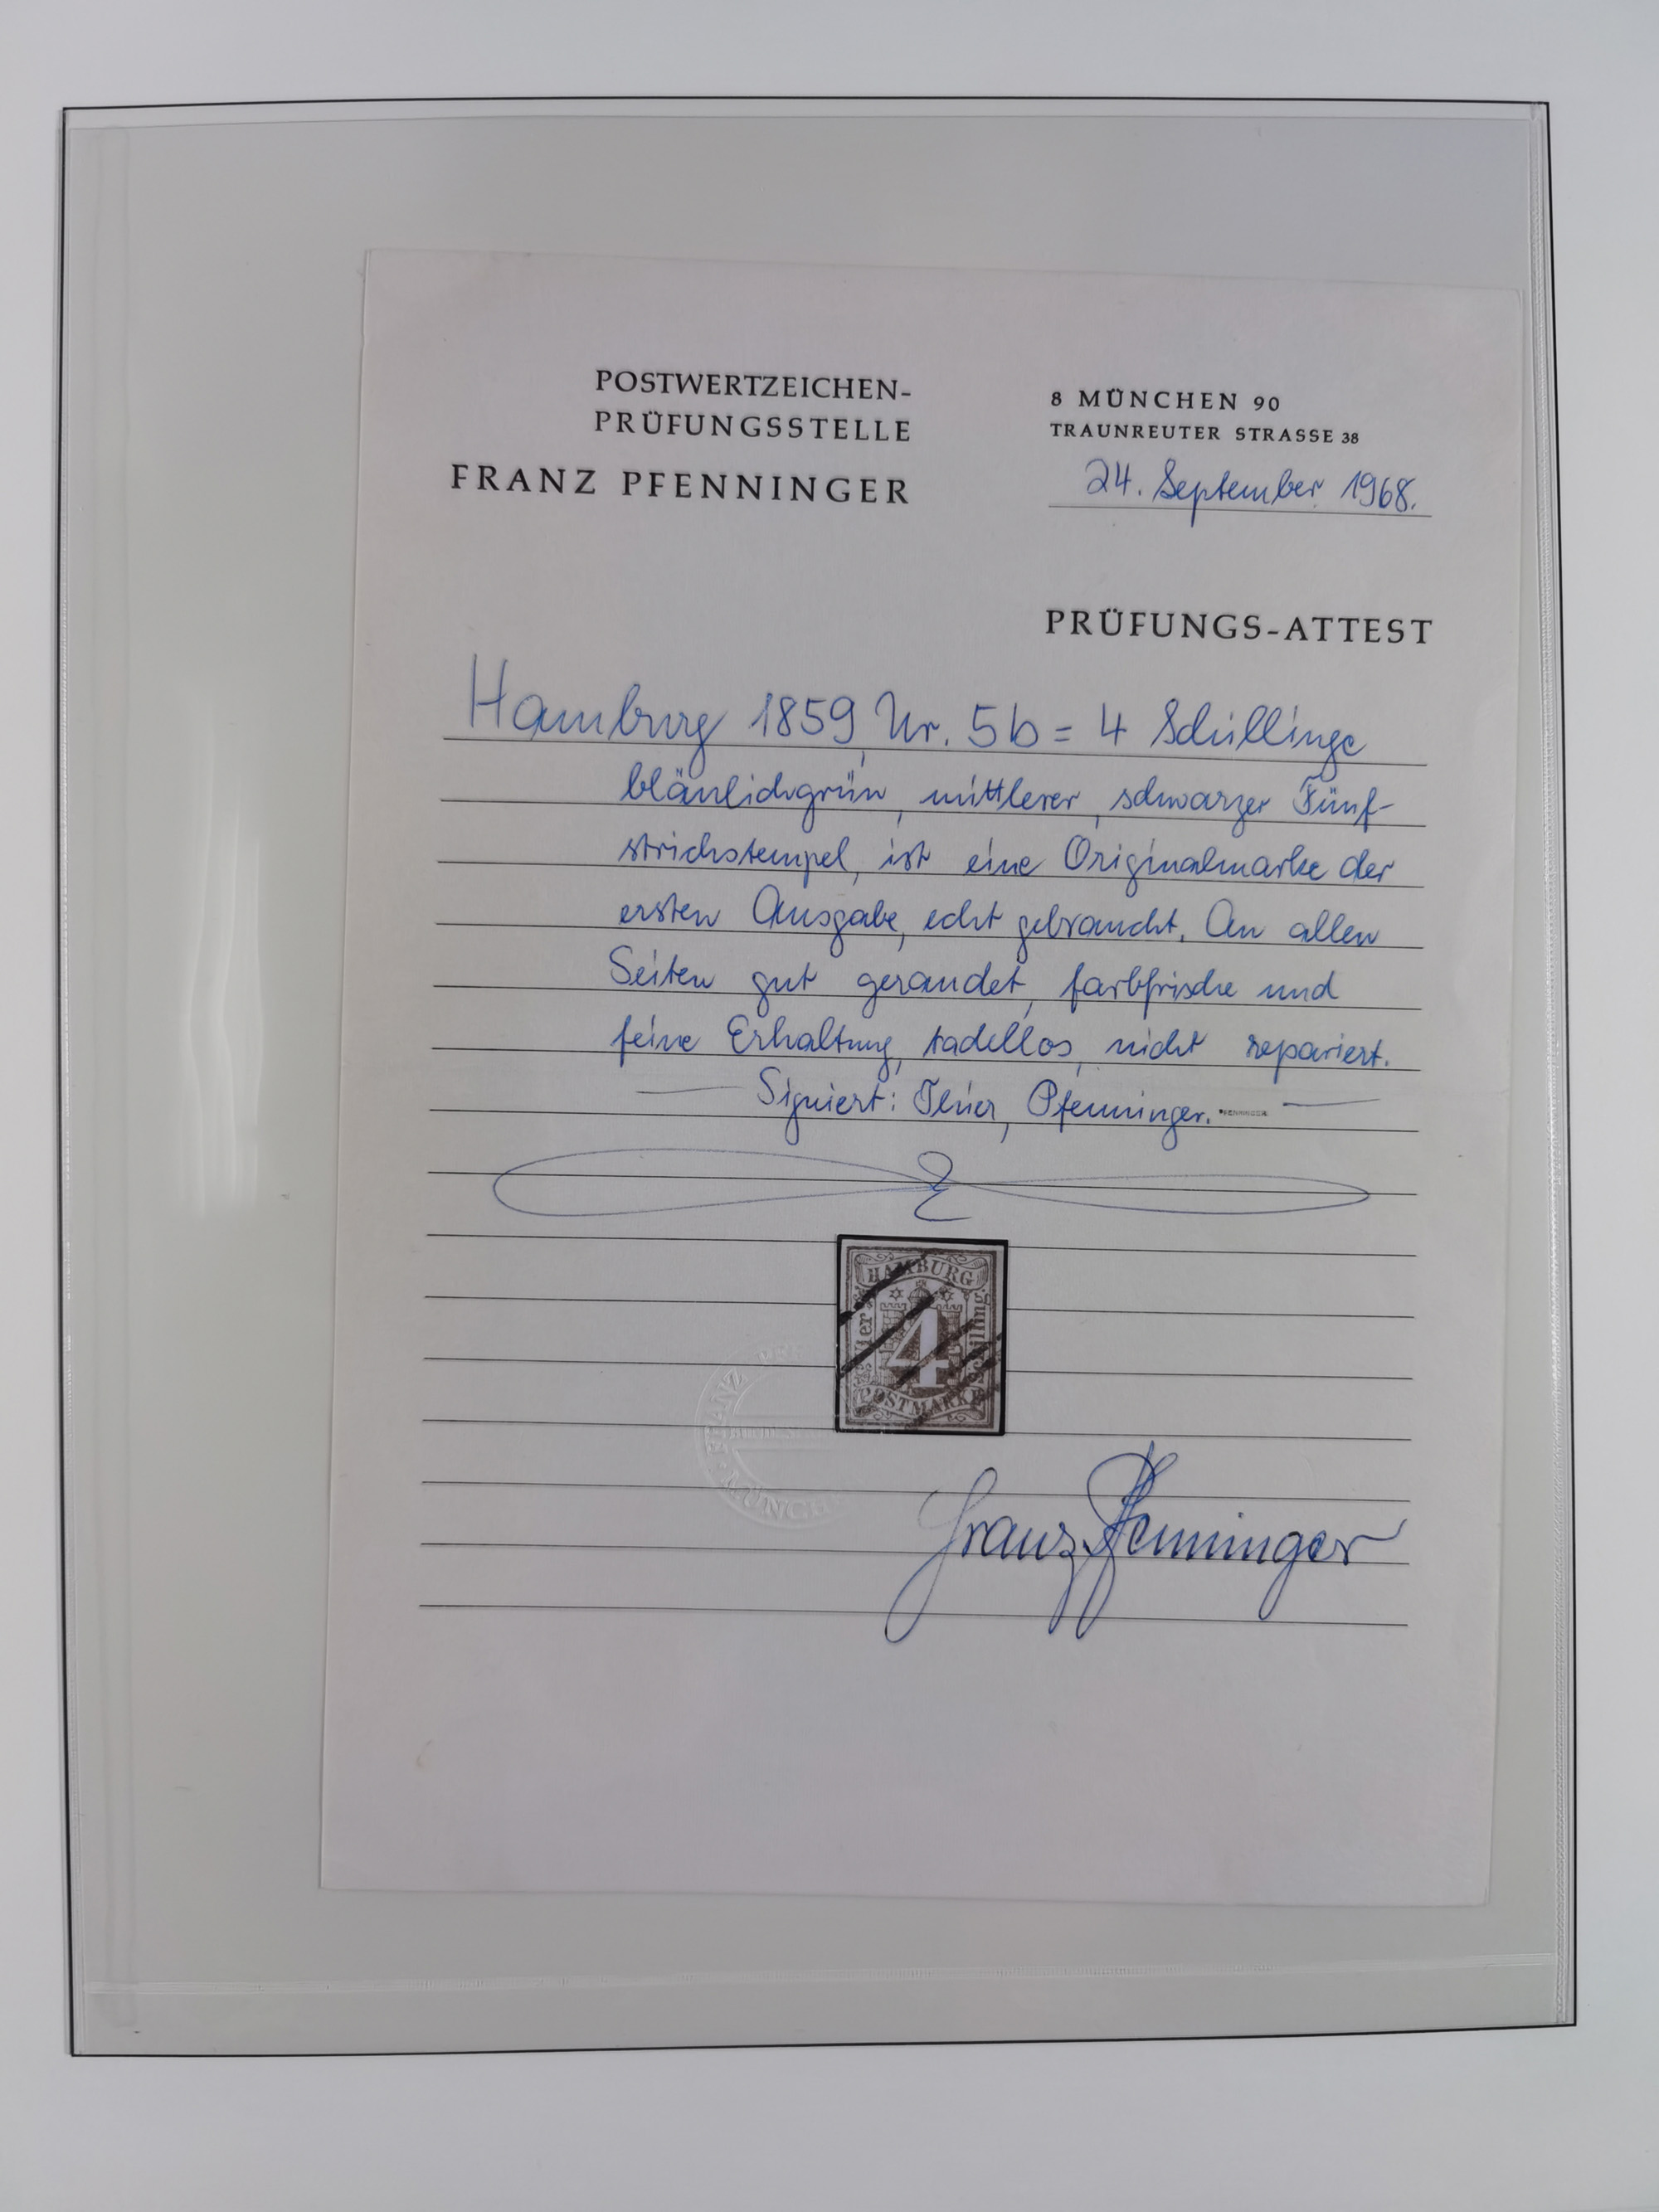 POSTWERTZEICHEN-
PRÜFUNGSSTELLE
FRANZ PFENNINGER
8 MÜNCHEN 90
TRAUNREUTER STRASSE 38
24. September 1968.
PRÜFUNGS-ATTEST
Hamburg 1859, Nr. 5b = 4 Schillinge
bläulichgrün, mittlerer, schwarzer Fünf-
strichstempel, ist eine Originalmarke der
ersten Ausgabe, echt gebraucht. An allen
Seiten gut gerandet, farbfrische und
feine Erhaltung, tadellos, nicht repariert.
Signiert: Pfenninger. PFENNINGER
HAMBURG
Vier
4
Schilling
POSTMARKE
FRANZ
MÜNCHEN
Franz Pfenninger